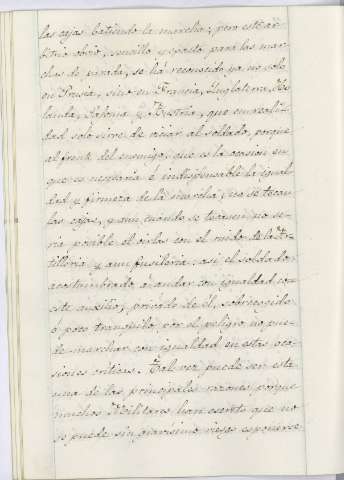 las cajas batiendo la marcha; pero este ar-
bitrio obvio, sencillo y exacto para las mar-
chas de parada, se há reconocido ya no solo
en Prusia, sino en Francia, Ynglaterra, Ho-
landa, Polonia y Austria, que en reali-
dad solo sirve de viciar al soldado, porque
al frente del enemigo, que es la ocasion en
que es necesaria é indispensable la igual-
dad y firmeza de la marcha, no se tocan
las cajas, y aun cuando se tocasen no se-
ria posible el oirlas con el ruido de la Ar-
tilleria y aun fusileria: asi el soldado
acostumbrado á andar con igualdad con
este auxilio, privado de él, sobrecogido
ó poco tranquilo por el peligro no pue-
de marchar con igualdad en estas oca-
siones criticas. Tal vez puede ser esta
una de las principales razones porque
muchos Militares han escrito que no
se puede sin gravisimo riesgo exponerse